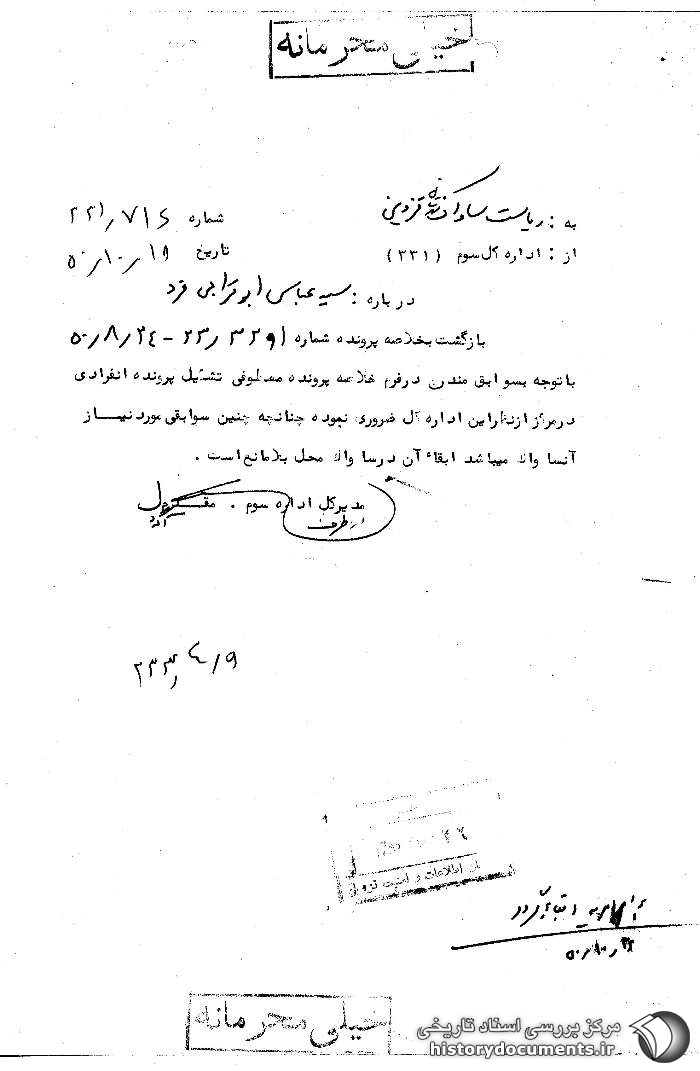 خیلی محرمانه
به : ریاست ساواک قزوین
شماره ۳۳۱٫۷۱۶
از : اداره کل سوم (۳۳۱)
تاریخ ۵۰٫۱۰٫۱۹
درباره : سید عباس ابوترابی فرد
بازگشت بخلاصه پرونده شماره ۲۳٫۳۲۹۱ - ۵۰٫۸٫۲۴
باتوجه بسوابق مندرج درفرم خلاصه پرونده معطوفی تشکیل پرونده انفرادی
درمرکز ازنظراین اداره کل ضروری نبوده چنانچه چنین سوابقی موردنیاز
آنساواک میباشد ابقاء آن درساواک محل بلامانع است .
مدیرکل اداره سوم . مقدم
از طرف
۲۳۳٫۴٫۹
اطلاعات و امنیت قزوین
خیلی محرمانه
مرکز بررسی اسناد تاریخی
historydocuments.ir